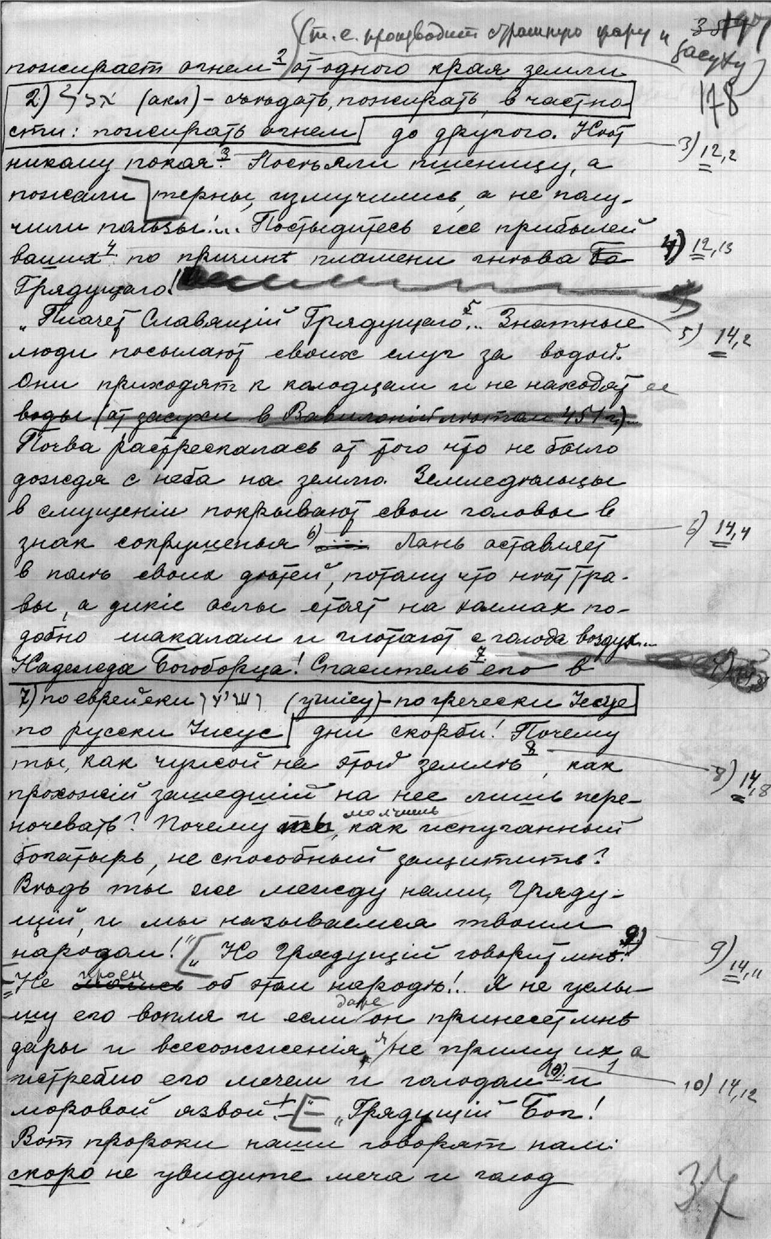 (т. е. производит страшную жару и
засуху)
178
пожирает огнем 2 от одного края земли
2) אכל (акл) - съедать, пожирать, в частно-
сти: пожирать огнем до другого. Нѣт
никому покоя. 3 Посѣяли пшеницу, а
3) 12,2
пожали терны, измучились, а не полу-
чили пользы!... Постыдитесь же прибылей
ваших 4 по причинѣ пламени гнѣва
4) 12,13
Грядущаго!
„Плачет Славящій Грядущаго 5... Знатные
5) 14,2
люди посылают своих слуг за водой.
Они приходят к колодцам и не находят ее
воды (от засухи в Вавилоніи лѣтом 451 г.)
Почва растрескалась от того что не было
дождя с неба на землю. Земледѣльцы
в смущеніи покрывают свои головы в
знак сокрушенья 6) .... Лань оставляет
6) 14,4
в полѣ своих дѣтей, потому что нѣт тра-
вы, а дикіе ослы стоят на холмах по-
добно шакалам и глотают с голода воздух...
Надежда Богоборца! Спаситель 7 его в
7) по еврейски ישוע (ушіеу) - по гречески Іесуе
по русски Іисус дни скорби! Почему
ты, как чужой на этой землѣ 8, как
8) 14,8
прохожій зашедшій на нее лишь пере-
ночевать? Почему молчишь, как испуганный
богатырь, не способный защитить?
Вѣдь ты же между нами, Гряду-
щій, и мы называемся твоим
народом!" 9) „Но Грядущій говорит мнѣ:
9) 14,11
Не проси об этом народѣ!.. Я не услы-
шу его вопля и если даже он принесет мнѣ
дары и всесожженія, я не приму их, а
истреблю его мечем и голодом 10) и
10) 14,12
моровой язвой! „Грядущій Бог!
Вот пророки наши говорят нам:
скоро не увидите меча и голод
37